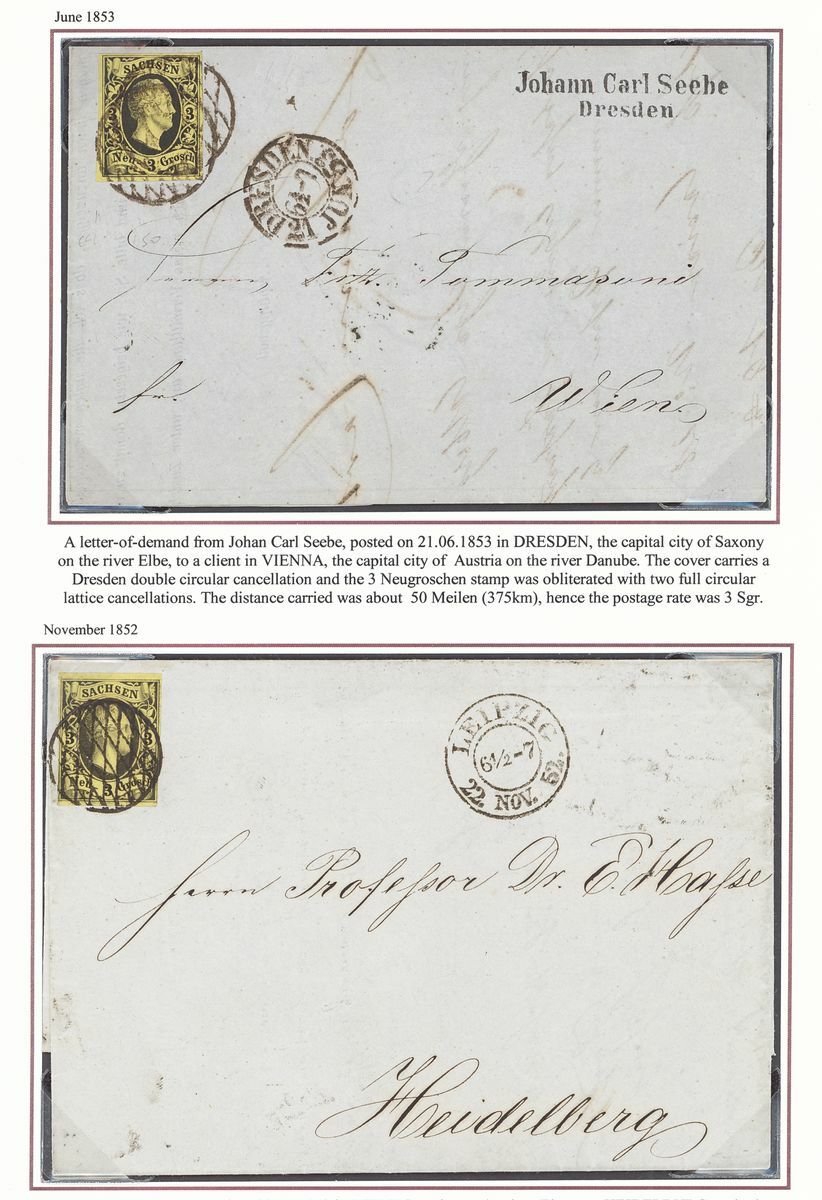 June 1853
SACHSEN
3 3
Neu 3 Grosch
Johann Carl Seebe
Dresden
DRESDEN 21 JUN 53
Herren Tommasoni
fr. Wien
A letter-of-demand from Johan Carl Seebe, posted on 21.06.1853 in DRESDEN, the capital city of Saxony
on the river Elbe, to a client in VIENNA, the capital city of Austria on the river Danube. The cover carries a
Dresden double circular cancellation and the 3 Neugroschen stamp was obliterated with two full circular
lattice cancellations. The distance carried was about 50 Meilen (375km), hence the postage rate was 3 Sgr.
November 1852
SACHSEN
3 3
Neu 3 Grosch
LEIPZIG
6½-7
22. NOV. 52.
Herrn Professor Dr. E. Hasse
Heidelberg